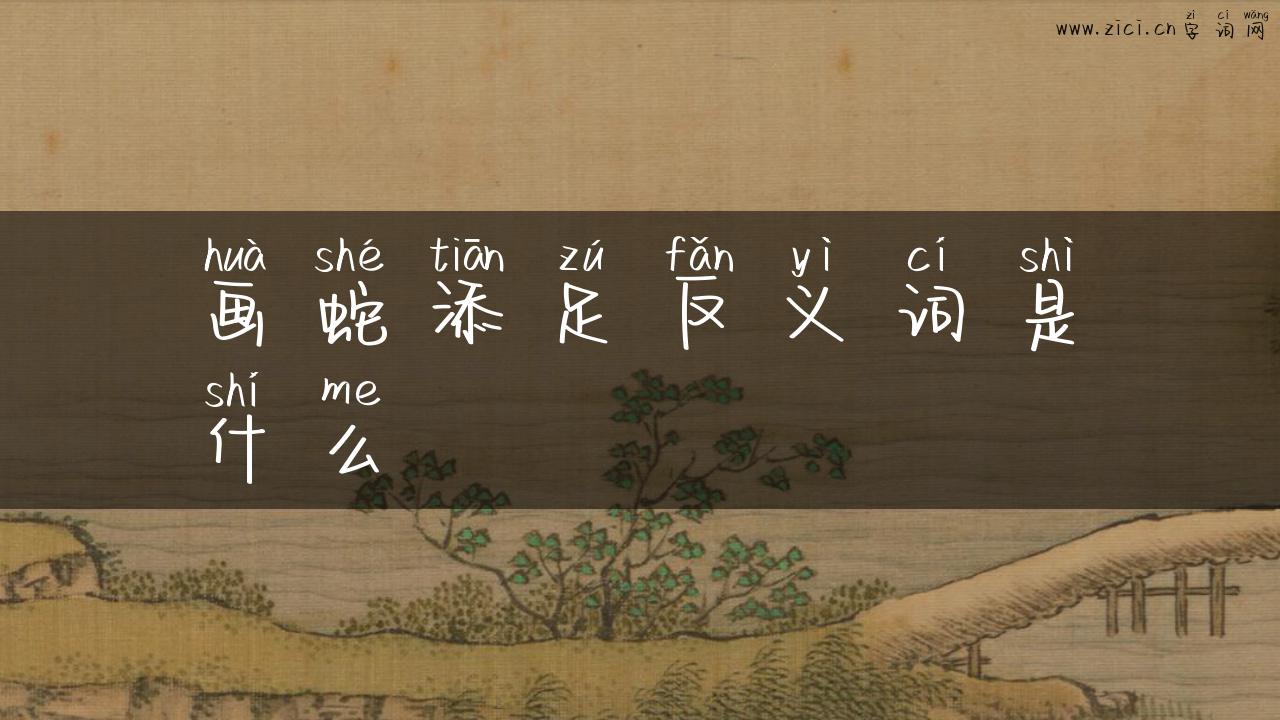 zì cí wǎng
www.zici.cn 字词网
huà shé tiān zú fǎn yì cí shì
画蛇添足反义词是
shí me
什么